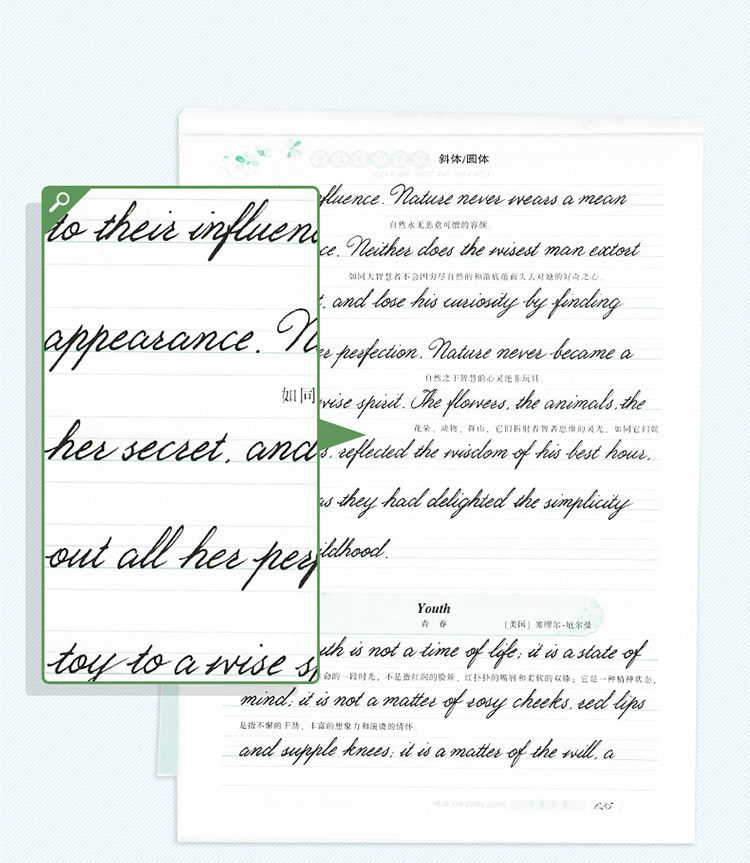 斜体/圆体
to their influenc
fluence. Nature never wears a mean
自然永无恶意可憎的容颜。
ce. Neither does the wisest man extort
appearance. N
如同大智慧者不会因穷尽自然的和谐底蕴而失去对她的好奇之心。
t, and lose his curiosity by finding
如同
her secret, and
er perfection. Nature never became a
自然之于智慧的心灵绝非玩具。
wise spirit. The flowers, the animals, the
花朵、动物、群山，它们折射着智者思维的灵光，如同它们娱
s, reflected the wisdom of his best hour,
out all her perf
as they had delighted the simplicity
ildhood.
toy to a wise s
Youth
青 春
(美国) 塞缪尔·厄尔曼
uth is not a time of life; it is a state of
命的一段时光，不是指红润的脸颊，红扑扑的嘴唇和柔软的双膝；它是一种精神状态，
mind; it is not a matter of rosy cheeks, red lips
是指不懈的干劲、丰富的想象力和滚烫的情怀。
and supple knees; it is a matter of the will, a
HUA XIA WAN JUAN
025